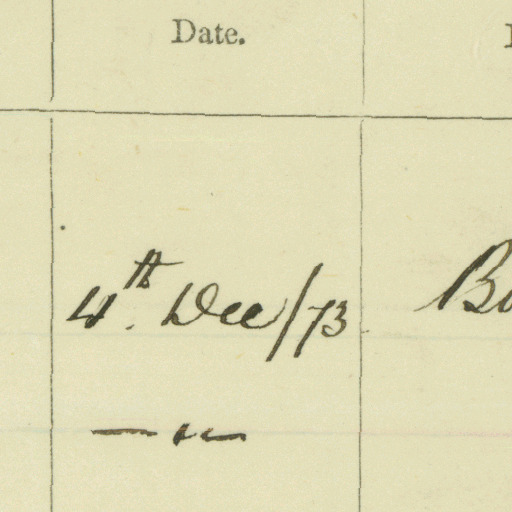 Date.
4th. Dec/73
— " —